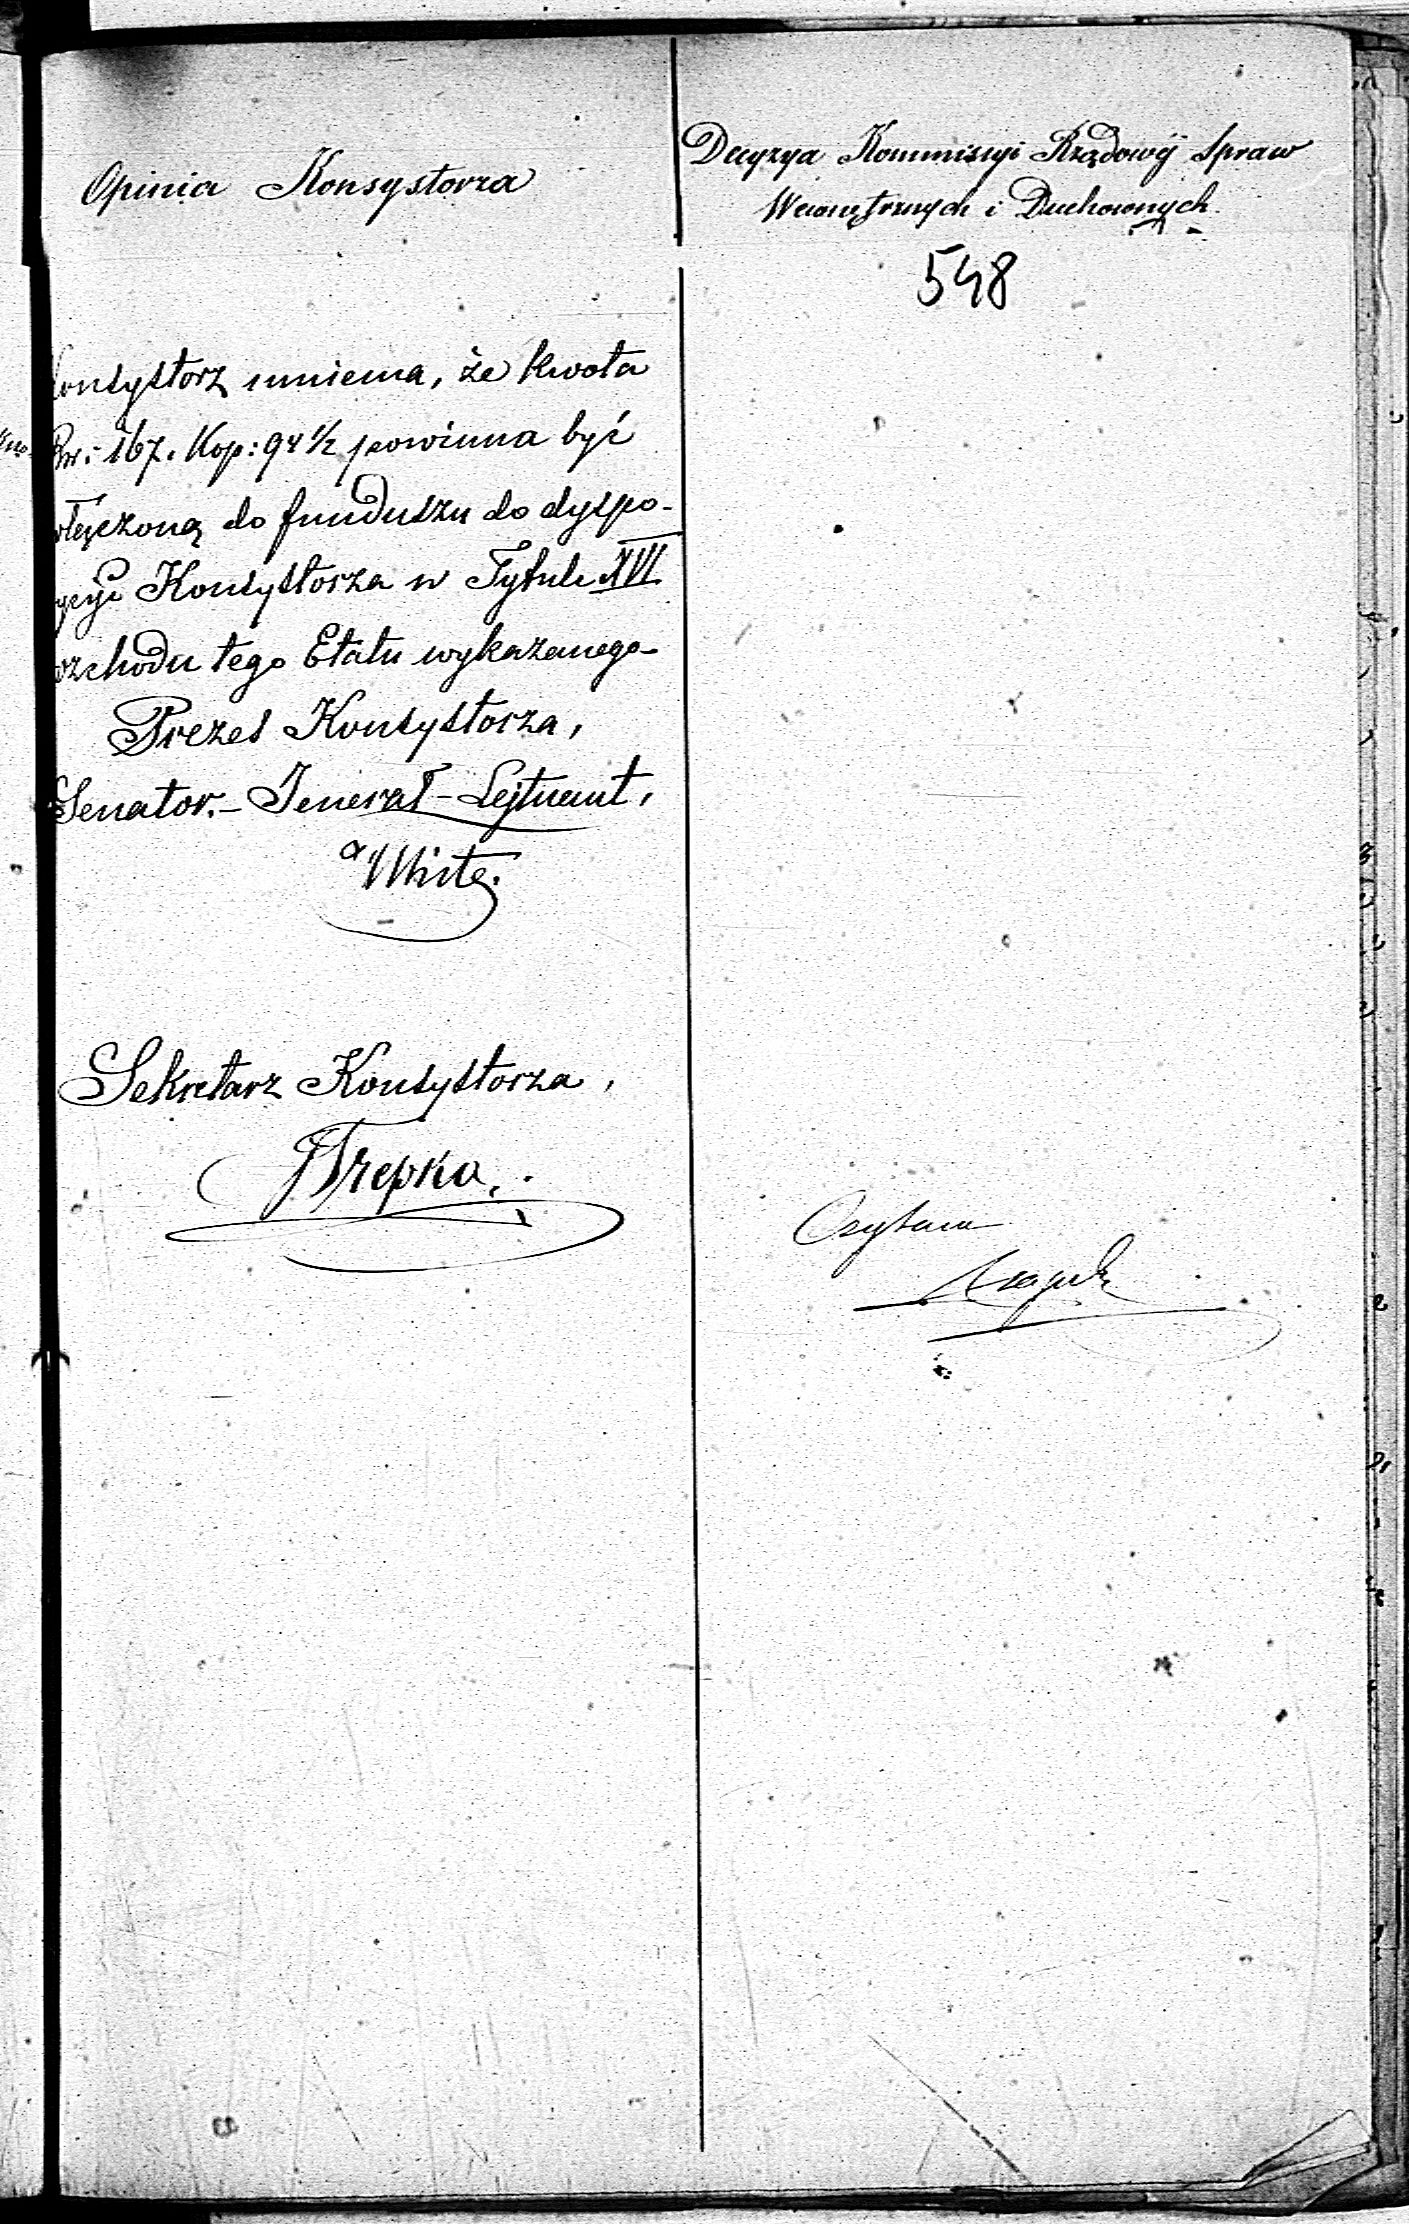 Opinia Konsystorza
Decyzya Kommissyi Rządowéj Spraw
Wewnętrznych i Duchownych.
548
Konsystorz mniema, że kwota
Rsr: 167. Kop: 94 1/2 powinna być
włączoną do funduszu do dyspo-
zycyi Konsystorza w Tytule XVI
rozchodu tego Etatu wykazanego
Prezes Konsystorza,
Senator.- Jenerał-Lejtnant,
White.
Sekretarz Konsystorza,
JTrepka.
Czytano